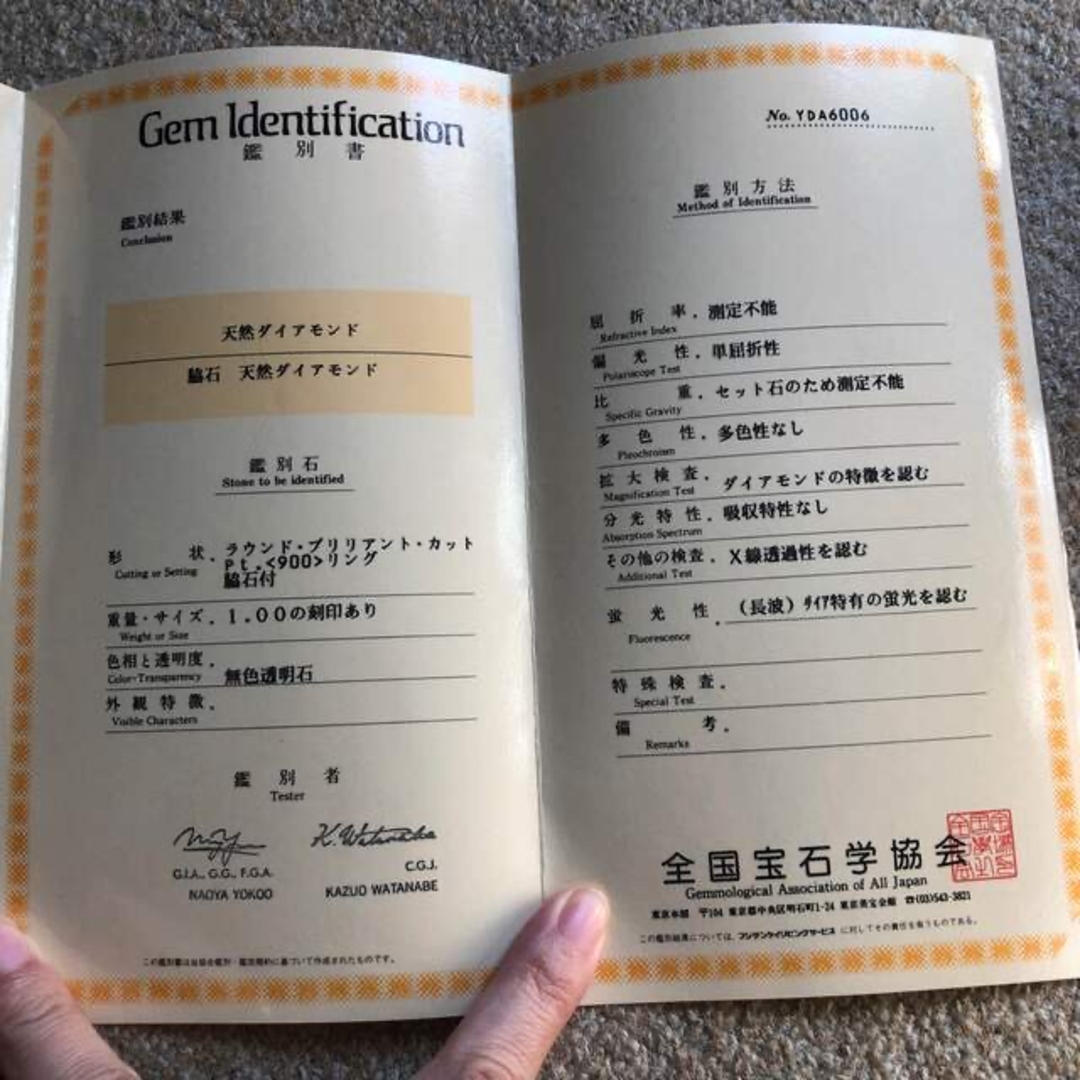 Gem Identification
鑑別書
鑑別結果
Conclusion
天然ダイアモンド
脇石 天然ダイアモンド
鑑別石
Stone to be identified
形状. ラウンド・ブリリアント・カット
Pt.<900>リング
Cutting or Setting
脇石付
重量・サイズ. 1.00の刻印あり
Weight or Size
色相と透明度.
Color-Transparency 無色透明石
外観特徴.
Visible Characters
鑑別者
Tester
K. Watanabe
G.I.A., G.G., F.G.A.
NAOYA YOKOO
C.G.J.
KAZUO WATANABE
この鑑別書は当協会鑑別・鑑定規約に基づいて作成されたものです。
No. YDA6006
鑑別方法
Method of Identification
屈折率. 測定不能
Refractive Index
偏光性. 単屈折性
Polariscope Test
比重. セット石のため測定不能
Specific Gravity
多色性. 多色性なし
Pleochroism
拡大検査. ダイアモンドの特徴を認む
Magnification Test
分光特性. 吸収特性なし
Absorption Spectrum
その他の検査. X線透過性を認む
Additional Test
蛍光性. (長波)ダイア特有の蛍光を認む
Fluorescence
特殊検査.
Special Test
備考.
Remarks
全国宝石学協会
Gemmological Association of All Japan
東京本部 〒104 東京都中央区明石町1-24 東京美宝会館 ☎(03)543-3821
この鑑別結果については、フジデンケイリビングサービス に対してその責任を有うものである。